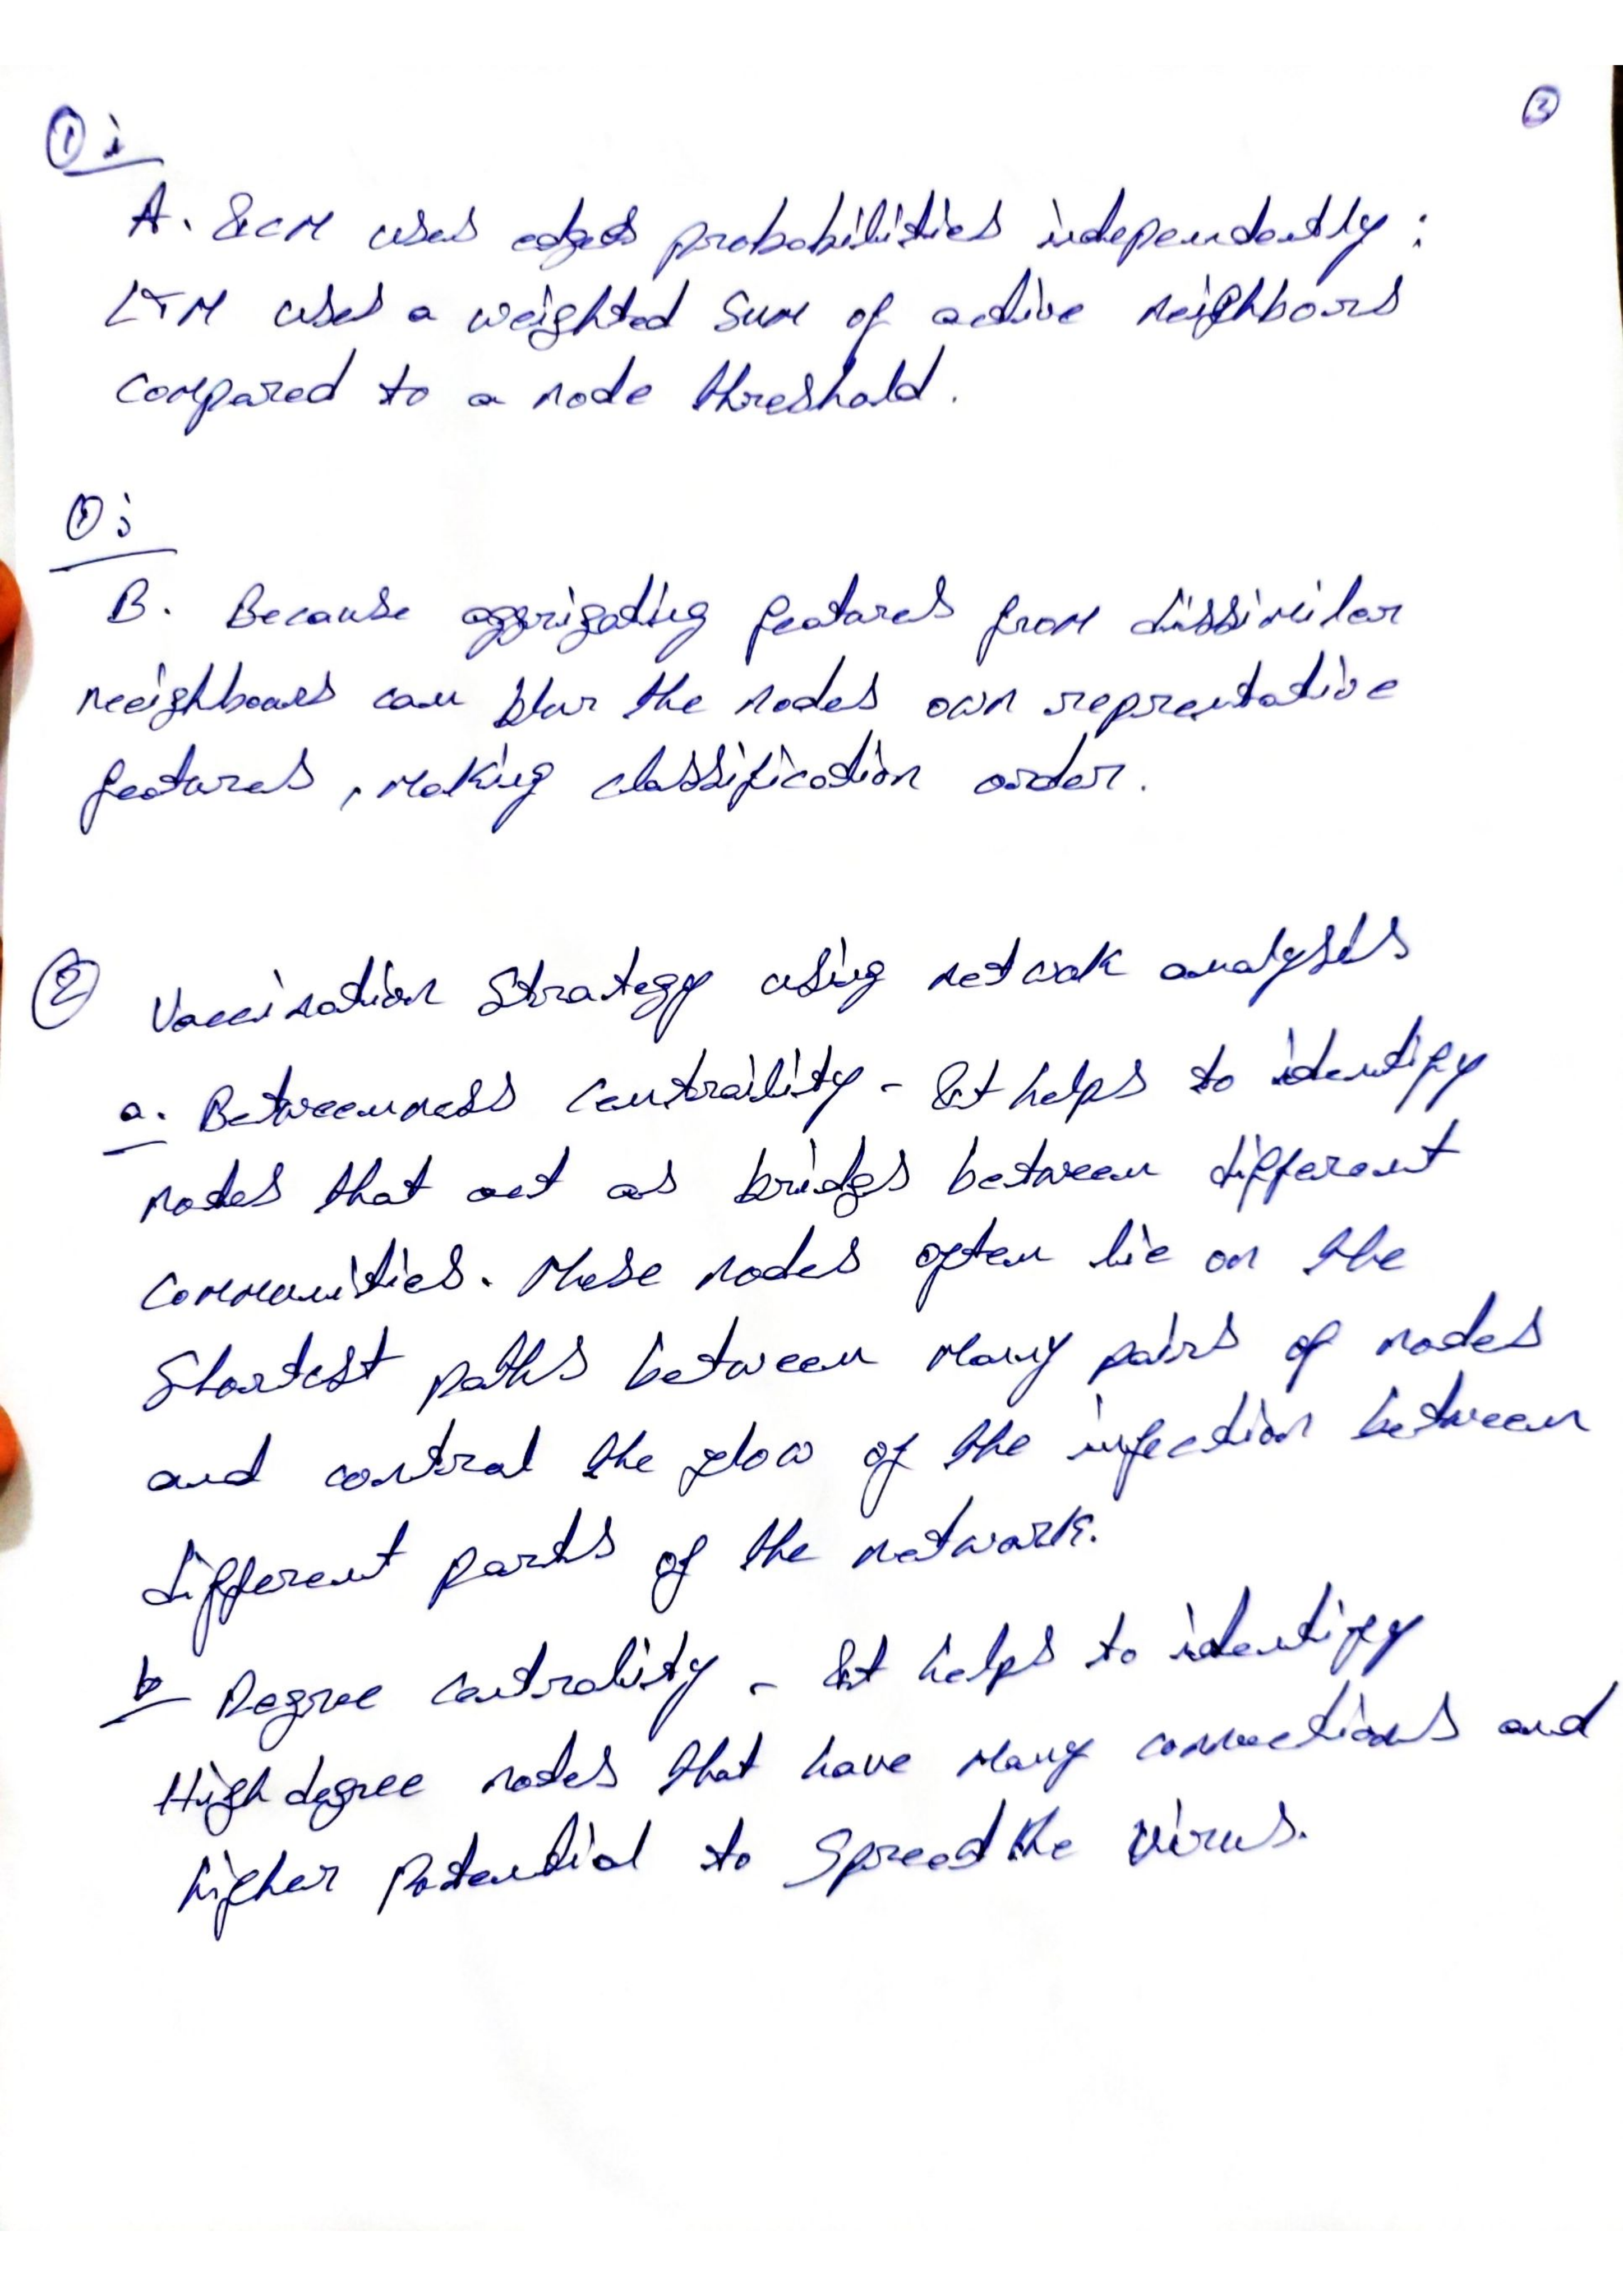 ②
① i
A. ICM uses edges probabilities independently :
LTM uses a weighted sum of active neighbours
compared to a node threshold.
① j
B. Because aggrigating features from dissimilar
neeighbours can blur the nodes own reprentative
features, making classification order.
② Vaccination Strategy using netwok analysis
a. Betweenness Centraility - It helps to identify
nodes that act as bridgs between different
communities. These nodes often lie on the
Shortest paths between many pairs of nodes
and control the flow of the infection between
different parts of the network.
b Degree centrality - It helps to identify
High degree nodes that have many connections and
higher potential to Spread the virus.